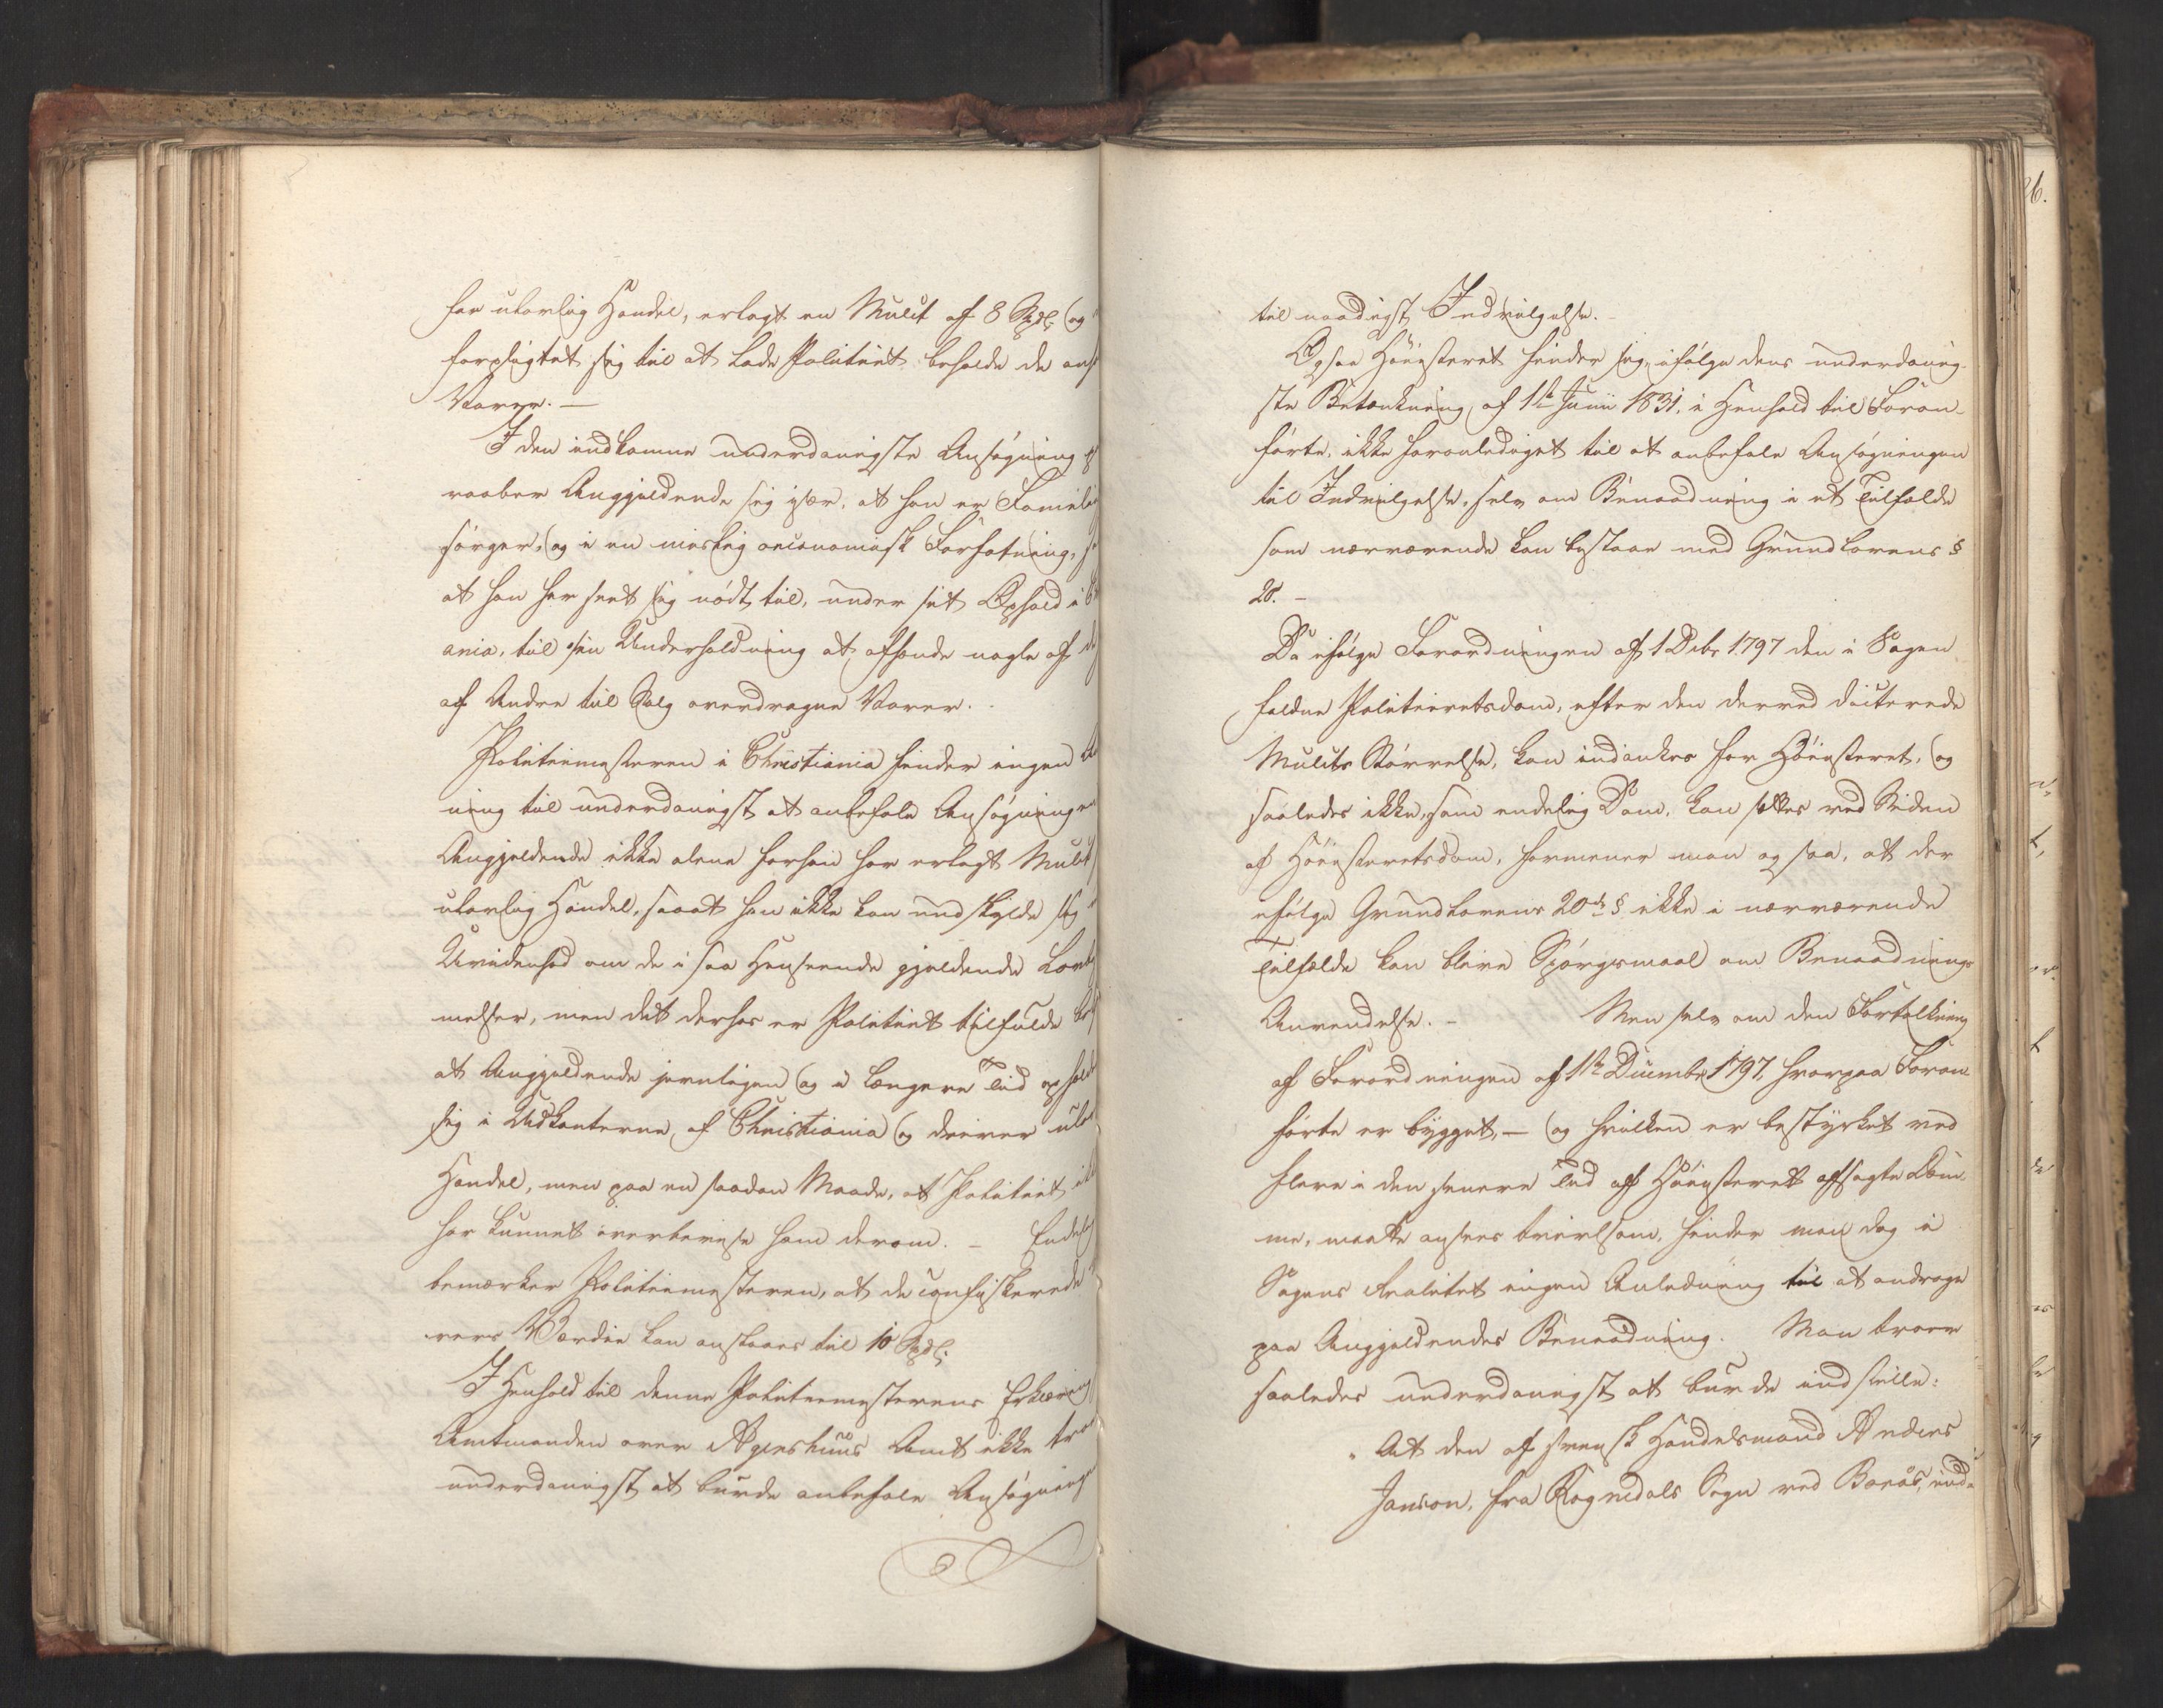 for ulovlig Handel, erlagt en Mulct af 8 Spdl. og
forpligtet sig til at lade Politiet beholde de
Varer. —
I den indkomne underdanigste Ansøgning
raaber Angjeldende sig især, at han er Familie
sørger, og i en mislig oeconomisk Forfatning,
at han har seet sig nødt til, under sit Ophold i
ania, til sin Underholdning at afhænde nogle af
af Andre til Salg overdragne Varer. -
Politiemesteren i Christiania finder ingen
ning til underdanigst at anbefale Ansøgningen
Angjeldende ikke alene forhen har erlagt Mulct
ulovlig Handel, saaat han ikke kan undskylde sig
Uvidenhed om de i saa Henseende gjeldende
melser, men det derhos er Politiet tilfulde
at Angjeldende jevnligen og i længere Tid
sig i Udkanterne af Christiania og driver
Handel, men paa en saadan Maade, at Politiet
har kunnet overbevise ham derom. -
bemærker Politiemesteren, at de confiskerede
rers Værdie kan ansl​aaes til 10 Spdl.
I Henhold til denne Politiemesterens Erklæring
Amtmanden over Agershuus Amt ikke
underdanigst at burde anbefale Ansøgningen
til naadigst Indvilgelse. -
Ogsaa Høiesteret finder sig, ifølge dens underdanig-
ste Betænkning af 1ste Junii 1831, i Henhold til Foran-
førte, ikke foranlediget til at anbefale Ansøgningen
til Indvilgelse, selv om Benaadning i et Tilfælde
som nærværende kan bestaae med Grundlovens §
20. -
Da ifølge Forordningen af 1 Decbr 1797 den i Sagen
faldne Politieretsdom, efter den derved dicterede
Mulcts Størrelse, kan indankes for Høiesteret, og
saaledes ikke, som endelig Dom, kan sættes ved Siden
af Høiesteretsdom, formener man ogsaa, at der
ifølge Grundlovens 20de § ikke i nærværende
Tilfælde kan blive Spørgsmaal om Benaadnings
Anvendelse. - Men selv om den Fortolkning
af Forordningen af 1ste Decembr 1797, hvorpaa Foran-
førte er bygget, — og hvilken er bestyrket ved
flere i den senere Tid af Høiesteret afsagte Dom-
me, maatte ansees tvivlsom, finder man dog i
Sagens Realitet ingen Anledning til at andrage
paa Angjeldendes Benaadning. Man troer
saaledes underdanigst at burde indstille:
"At den af svensk Handelsmand Anders
Janson, fra Sogn ved Borås, ind-
26.